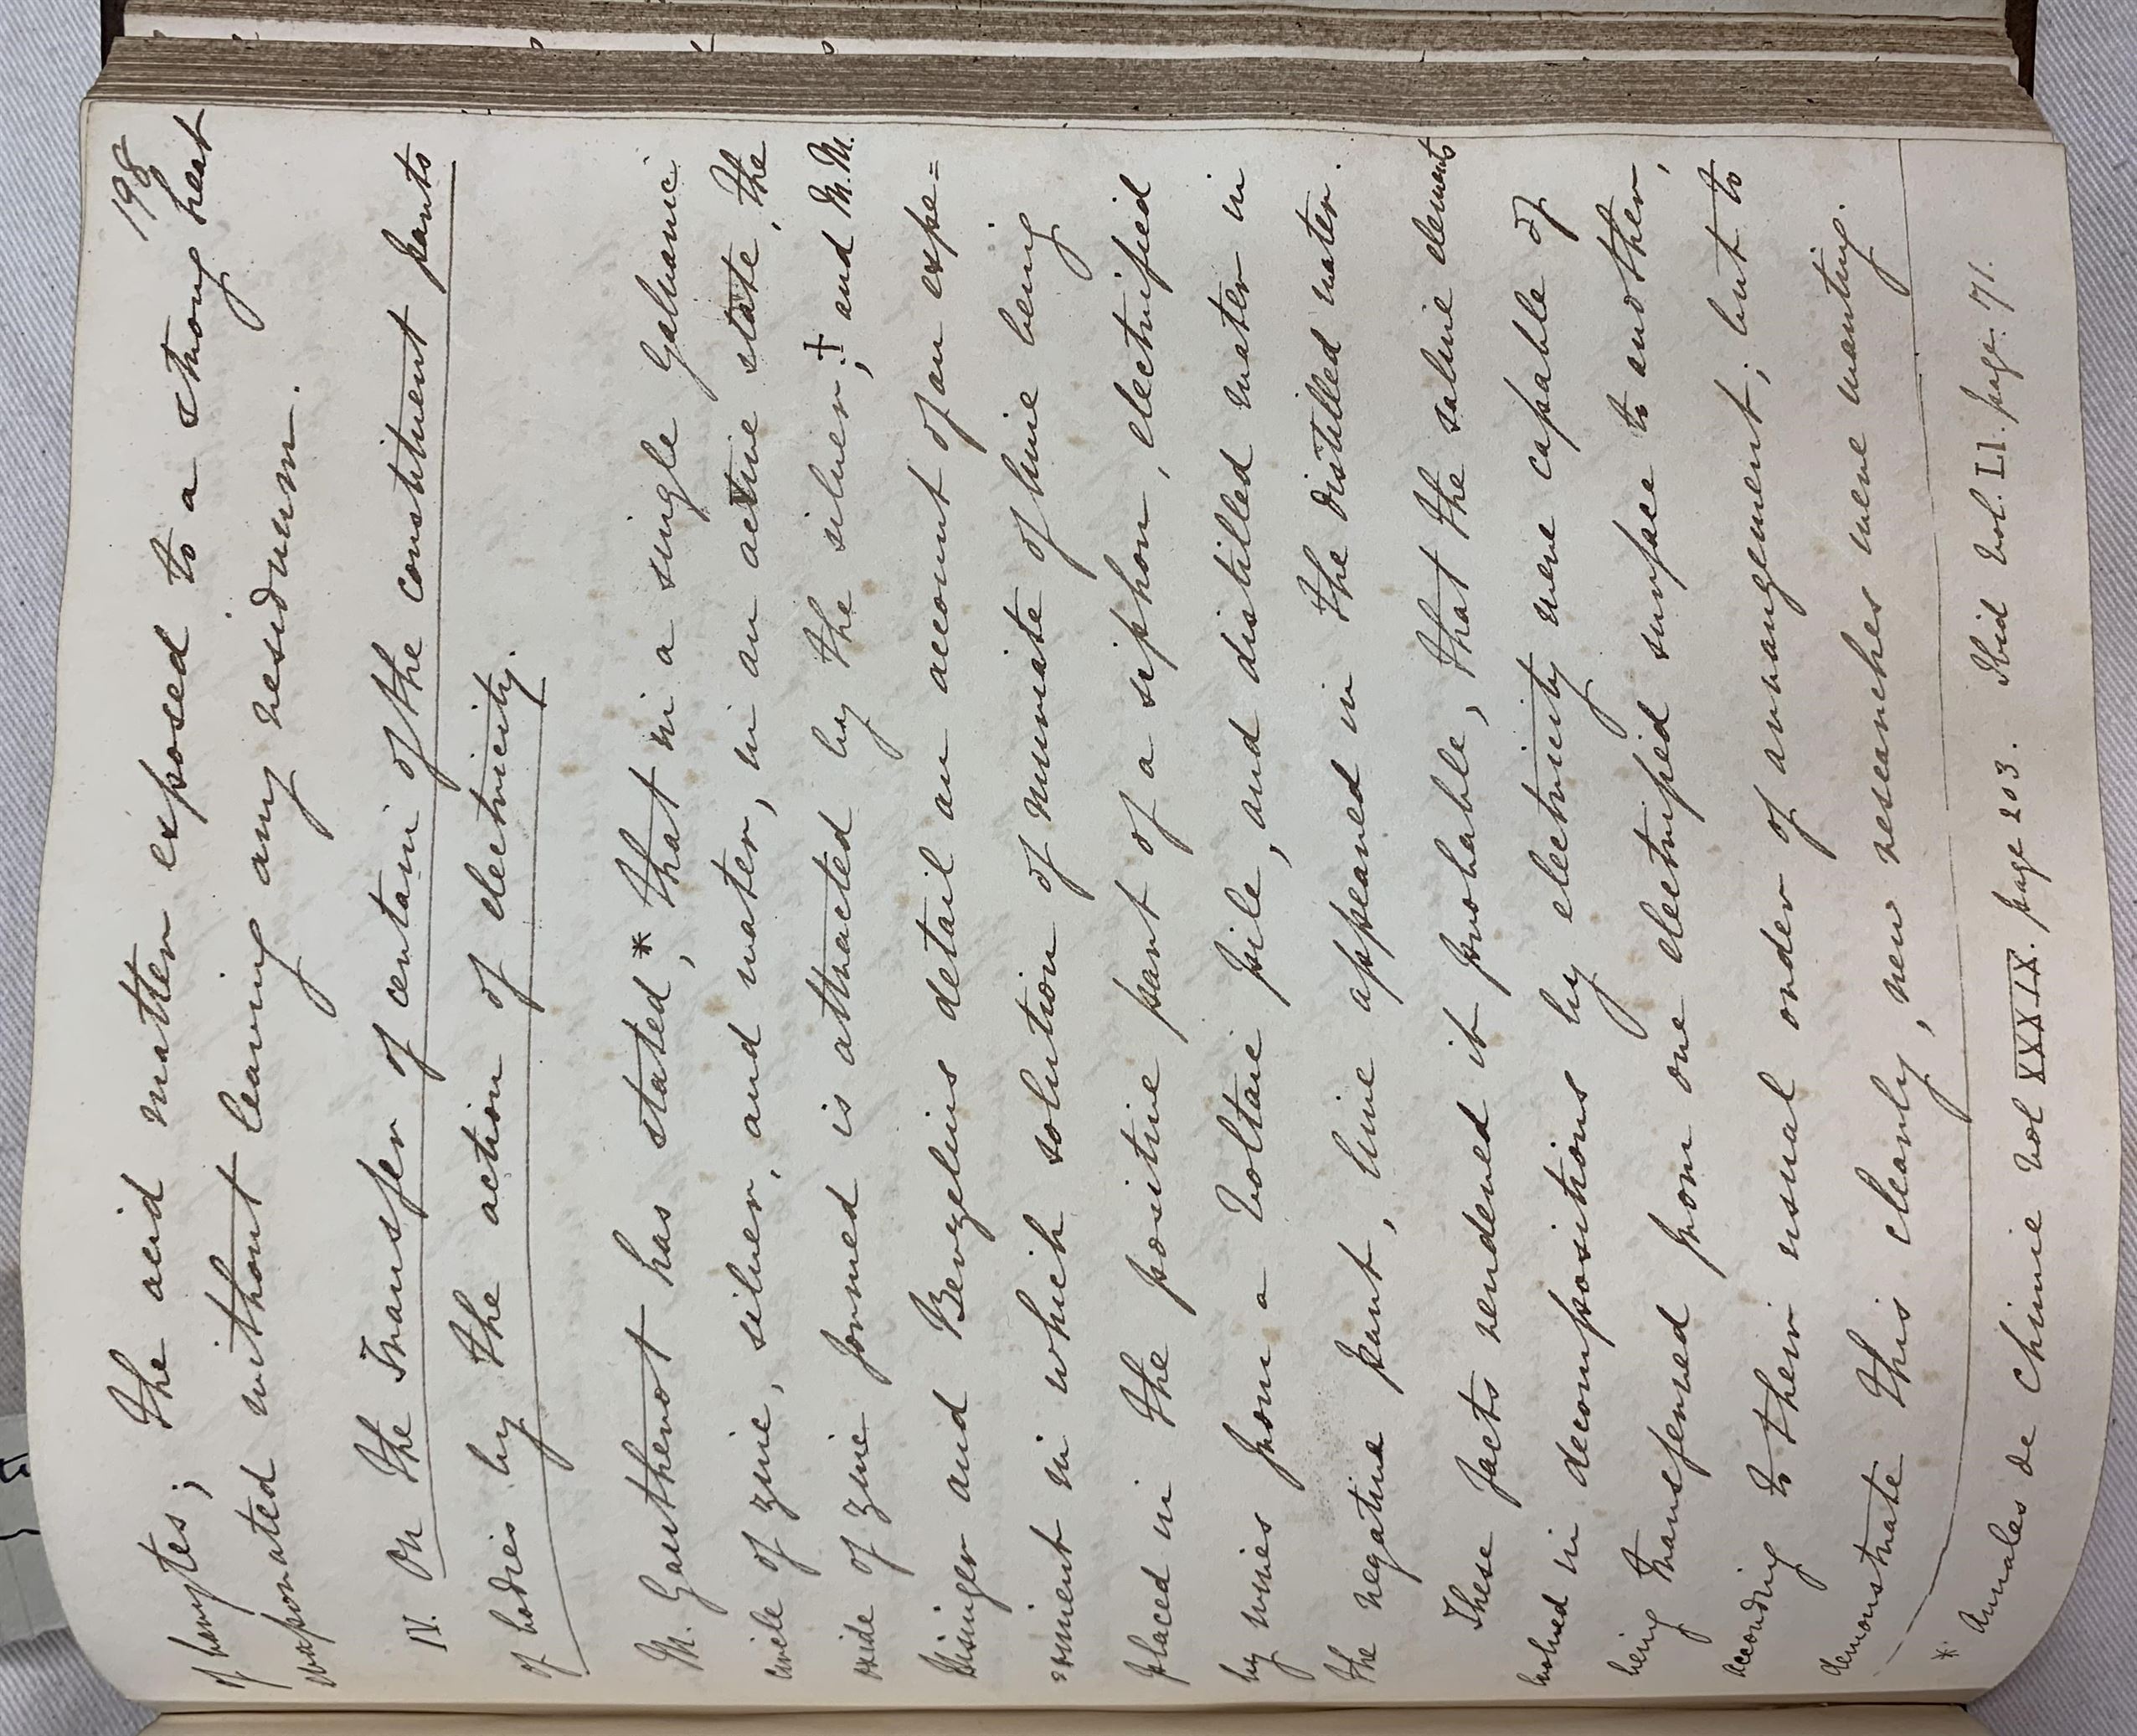 198
of barytes; the acid matter exposed to a strong heat
evaporated without leaving any residuum.
IV. On the Transfer of certain of the constituent parts
of bodies by the action of electricity.
M. Gautherot has stated,* that in a single Galvanic
circle of zinc, silver, and water, in an active state, the
oxide of zinc formed is attracted by the silver;+ and M.M.
Hisinger and Berzelius detail an account of an expe=
riment in which solution of muriate of lime being
placed in the positive part of a siphon, electrified
by wires from a Voltaic pile, and distilled water in
the negative part, lime appeared in the distilled water.
These facts rendered it probable, that the saline elements
evolved in decompositions by electricity were capable of
being transferred from one electrified surface to another,
according to their usual order of arrangement; but to
demonstrate this clearly, new researches were wanting.
* Annales de Chimie vol XXXIX. page 203. Ibid vol. LI. page. 71.